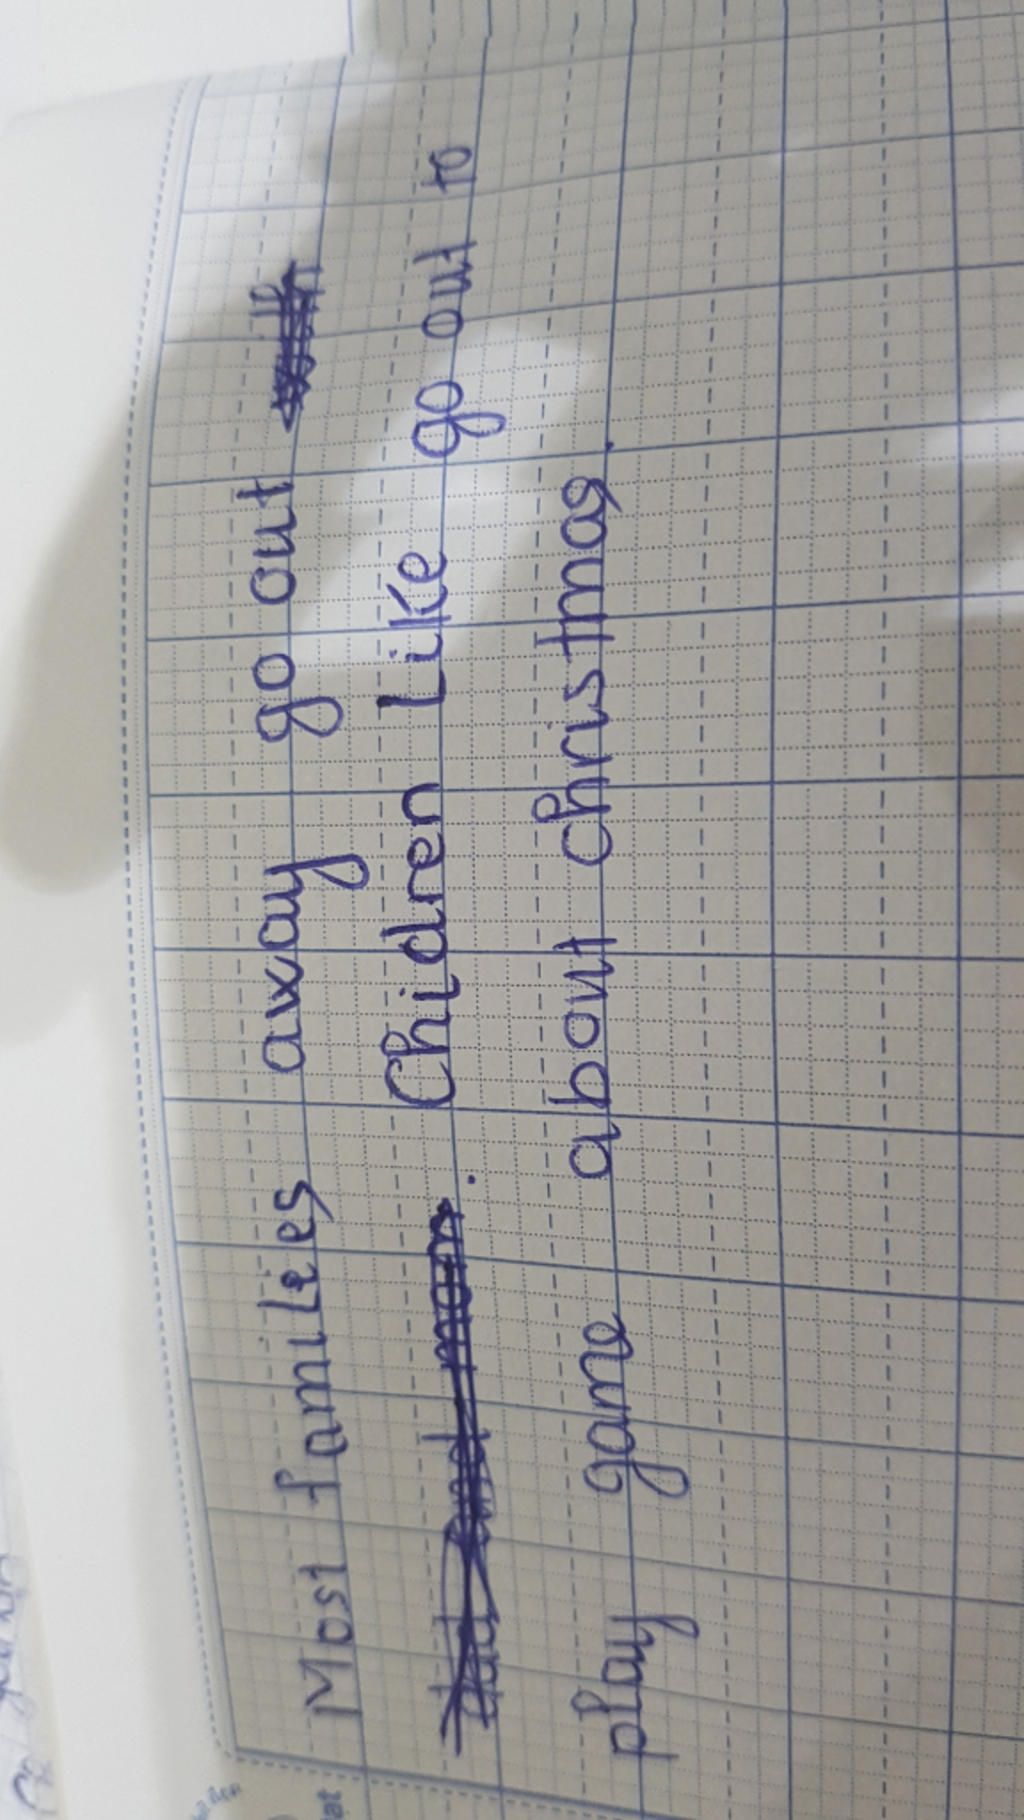 Most families away go out with
dad and mom. Chidren Like go out to
play game about christmas.